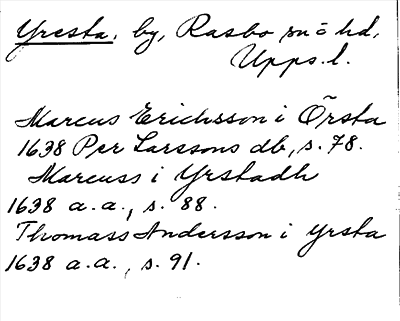 Yresta, by, Rasbo sn o hd,
Upps. l.
Marcus Erichsson i Õrsta
1638 Per Larssons db, s. 78.
Marcuss i Yrstadh
1638 a. a., s. 88.
Thomass Andersson i Yrsta
1638 a. a., s. 91.